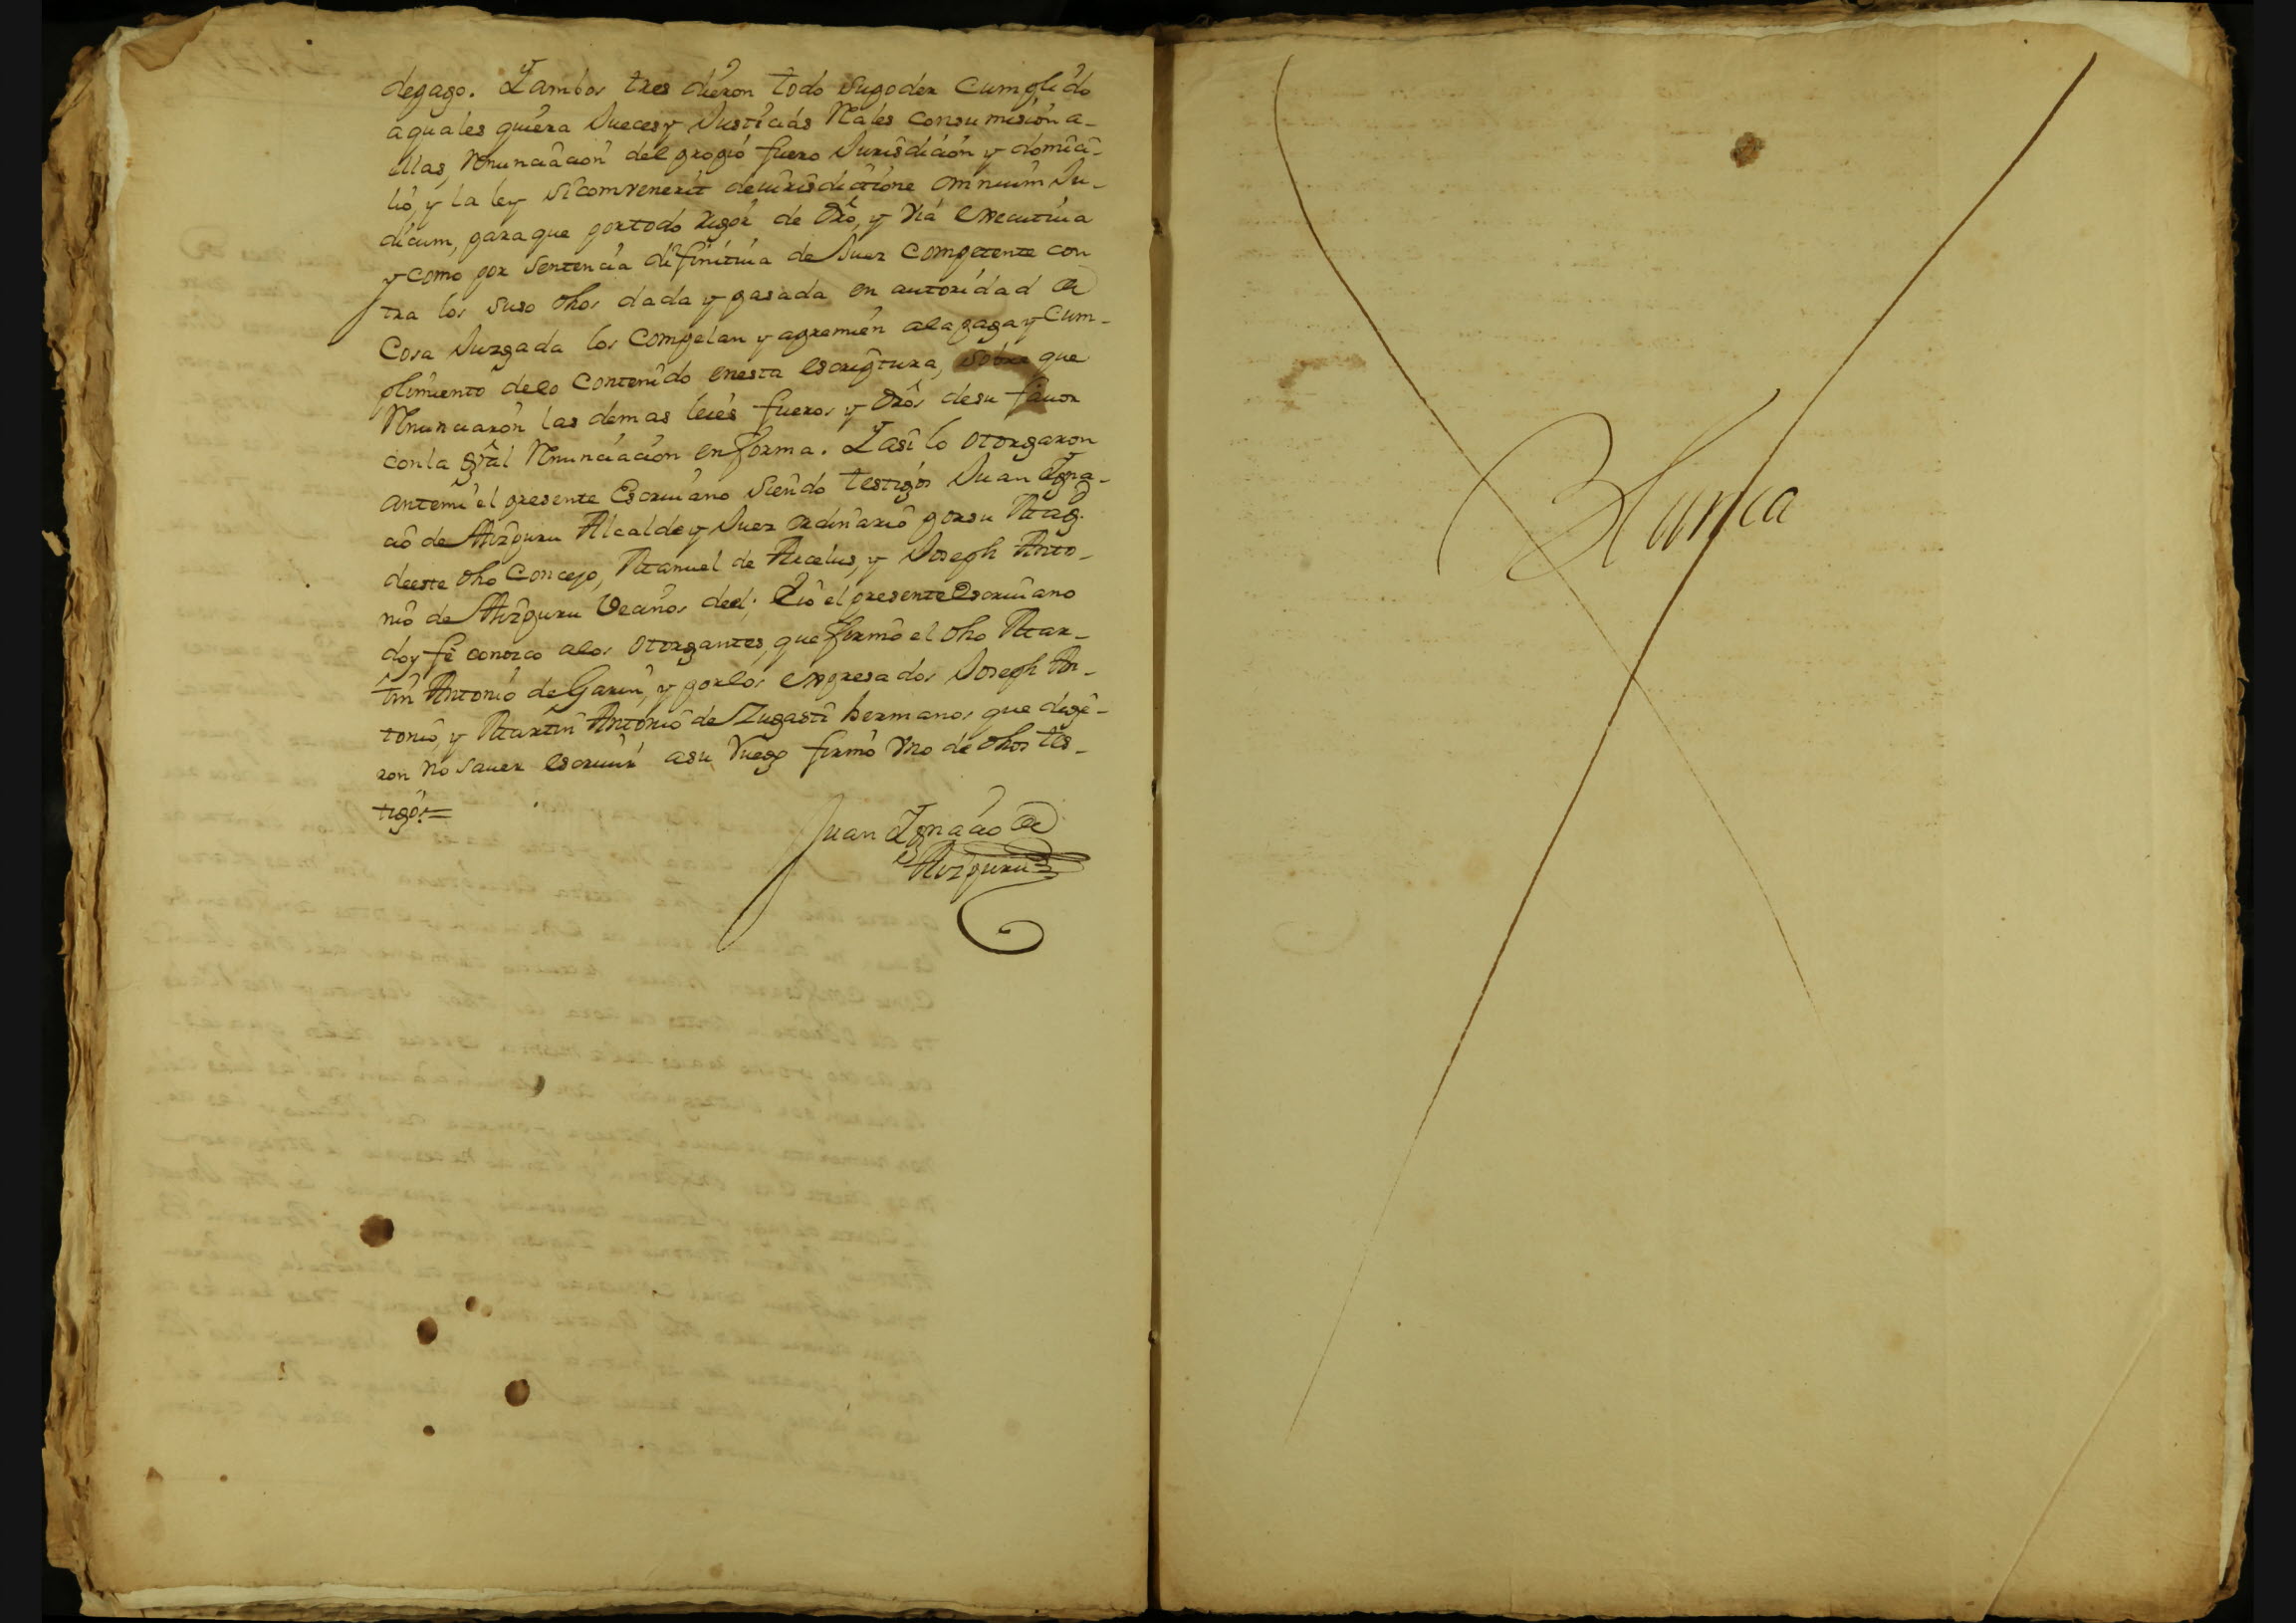 de pago. Y ambos tres dieron todo su poder cumplido
a quales quiera Jueces y Justicias Rales con sumision a-
llas, Renunciacion del propio fuero Jurisdicion y domici-
lio, y la ley si comvenerit de iurisdictione omnium Ju-
dicum, para que por todo rigor de dro, y via executiua
y como por sentencia difinitiua de Juez competente con
tra los suso dhos dada y pasada en autoridad de
Cosa Juzgada los compelan y apremien a la paga y cum-
plimiento de lo contenido en esta escriptura, sobre que
Renunciaron las demas leies fueros y dros de su fauor
con la gral Renunciacion en forma. Y asi lo otorgaron
ante mi el presente Escriuano siendo testigos Juan Igna-
cio de Aizpuru Alcalde y Juez ordinario por su Mag.d
de este dho Concejo, Manuel de Aicelus, y Joseph Anto-
nio de Aizpuru Vecinos de el; E io el presente Escriuano
doy fe conozco a los otorgantes, que firmó el dho Mar-
tin Antonio de Garin, y por los expresados Joseph An-
tonio, y Martin Antonio de Zugasti hermanos que dije-
ron no sauer escriuir a su ruego firmó vno de dhos tes-
tigos =
Juan Ignacio de
Aizpuru
Blanca